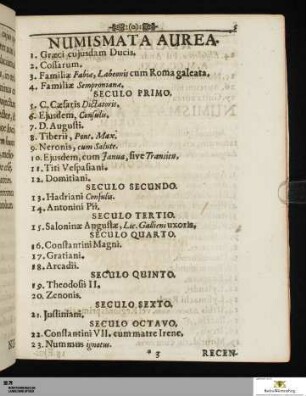 (o)
3
NUMISMATA AUREA.
1. Græci cujusdam Ducis.
2. Cossarum.
3. Familiæ Fabiæ, Labeonis cum Roma galeata.
4. Familiæ Semproniana.
SECULO PRIMO.
5. C. Cæsaris Dictatoris.
6. Ejusdem, Consulis.
7. D. Augusti.
8. Tiberii, Pont. Max.
9. Neronis, cum Salute.
10. Ejusdem, cum Janua, sive Transitu.
11. Titi Vespasiani.
12. Domitiani.
SECULO SECUNDO.
13. Hadriani Consulis.
14. Antonini Pii.
SECULO TERTIO.
15. Saloninæ Augustæ, Lic. Galieni uxoris.
SECULO QUARTO.
16. Constantini Magni.
17. Gratiani.
18. Arcadii.
SECULO QUINTO.
19. Theodosii II.
20. Zenonis.
SECULO SEXTO.
21. Justiniani.
SECULO OCTAVO.
22. Constantini VII. cum matre Irene.
23. Nummus ignotus.
* 3
RECEN-